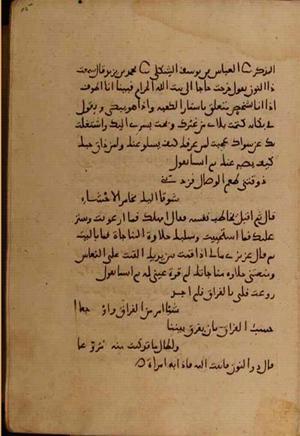 العباس بن يوسف الشكلي محمد بن يزيد قال سمعت
ذا النون يقول خرجت حاجا الى بيت الله الحرام فبينا انا اطوف
اذا انا بشخص متعلق باستار الكعبة واذا هو يبكي ويقول
في بكائه كتمت بلائي من غيرك وبحت بسري اليك واشتغلت
بك عن سواك عجبت لمن عرفك كيف يسلو عنك ولمن ذاق حبك
كيف يصبر عنك ثم انشا يقول
ذوقتني طعم الوصال فزدتني
شوقا اليك مخامر الاحشاء
قال ثم اقبل يخاطب نفسه فقال امهلك فما ارعويت وستر
عليك فما استحييت وسلبك حلاوة المناجاة فما باليت
ثم قال عزيزي مالي اذا قمت بين يديك القيت علي النعاس
ومنعتني حلاوة مناجاتك لم قرة عيني لم ثم انشا يقول
روعت قلبي بالفراق فلم اجد
شيئا امر من الفراق واوجعا
حسب الفراق بان يفرق بيننا
قال ذو النون فاتيت اليه فاذا به امراة